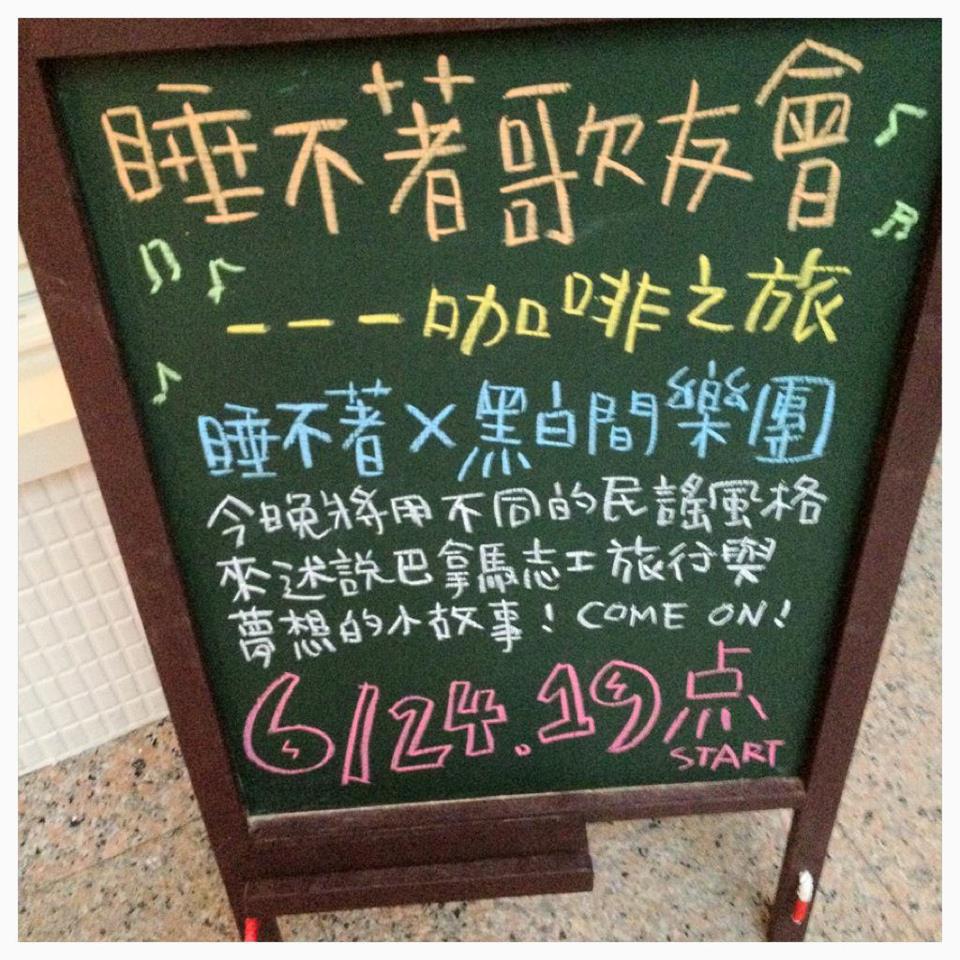 睡不著歌友會
---咖啡之旅
睡不著×黑白間樂團
今晚將用不同的民謠風格
來述說巴拿馬志工旅行與
夢想的小故事！COME ON!
6/24.19点
START